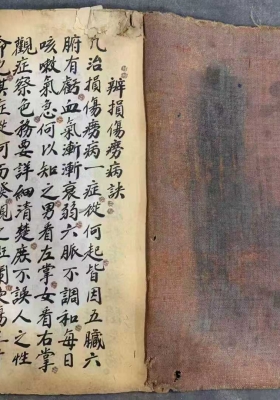 辨損傷癆病訣
凡治損傷癆病一症從何起皆因五臟六
腑有虧血氣漸漸衰弱六脈不調和每日
咳嗽氣急何以知之男看左掌女看右掌
觀症察色務要詳細清楚庶不誤人之性
命也其症從何而發現之